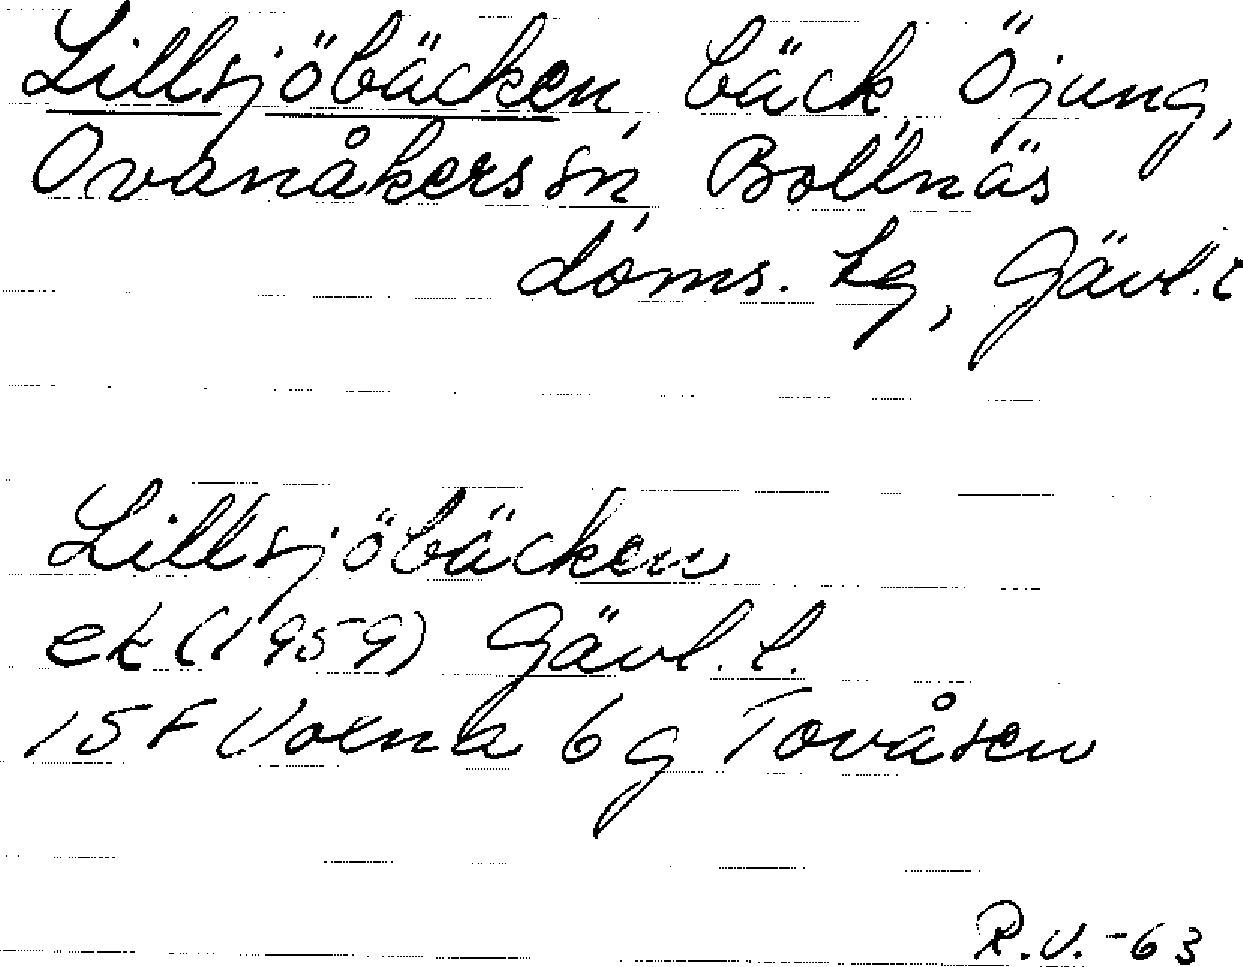 Lillsjöbäcken, bäck, Öjung,
Ovanåkers sn, Bollnäs
doms. lg, Gävl. l
Lillsjöbäcken
ek (1959) Gävl. l.
15 F Voxna 6 g Tovåsen
R.V. -63